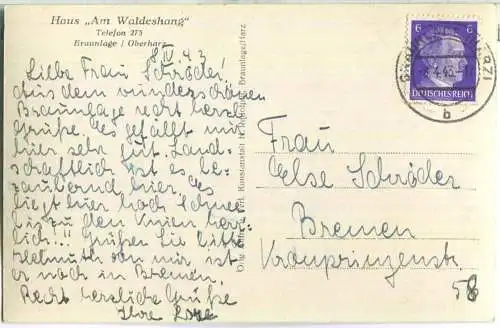 Haus „Am Waldeshang"
Telefon 273
Braunlage / Oberharz
8. IV 43
Liebe Frau Schröder!
Aus dem wunderschönen
Braunlage recht herzl.
Grüße. Es gefällt mir
hier sehr gut. Land-
schaftlich ist es be-
zaubernd hier. Es
liegt hier noch Schnee
bis zu den Knien herr-
lich... Grüßen Sie bitte
Helmuth von mir, ist
er noch in Bremen.
Recht herzliche Grüße
Ihre
6 6
DEUTSCHES REICH
b
Braunlage/Harz
Frau
Else Schröder
Bremen
Kronprinzenstr.
58